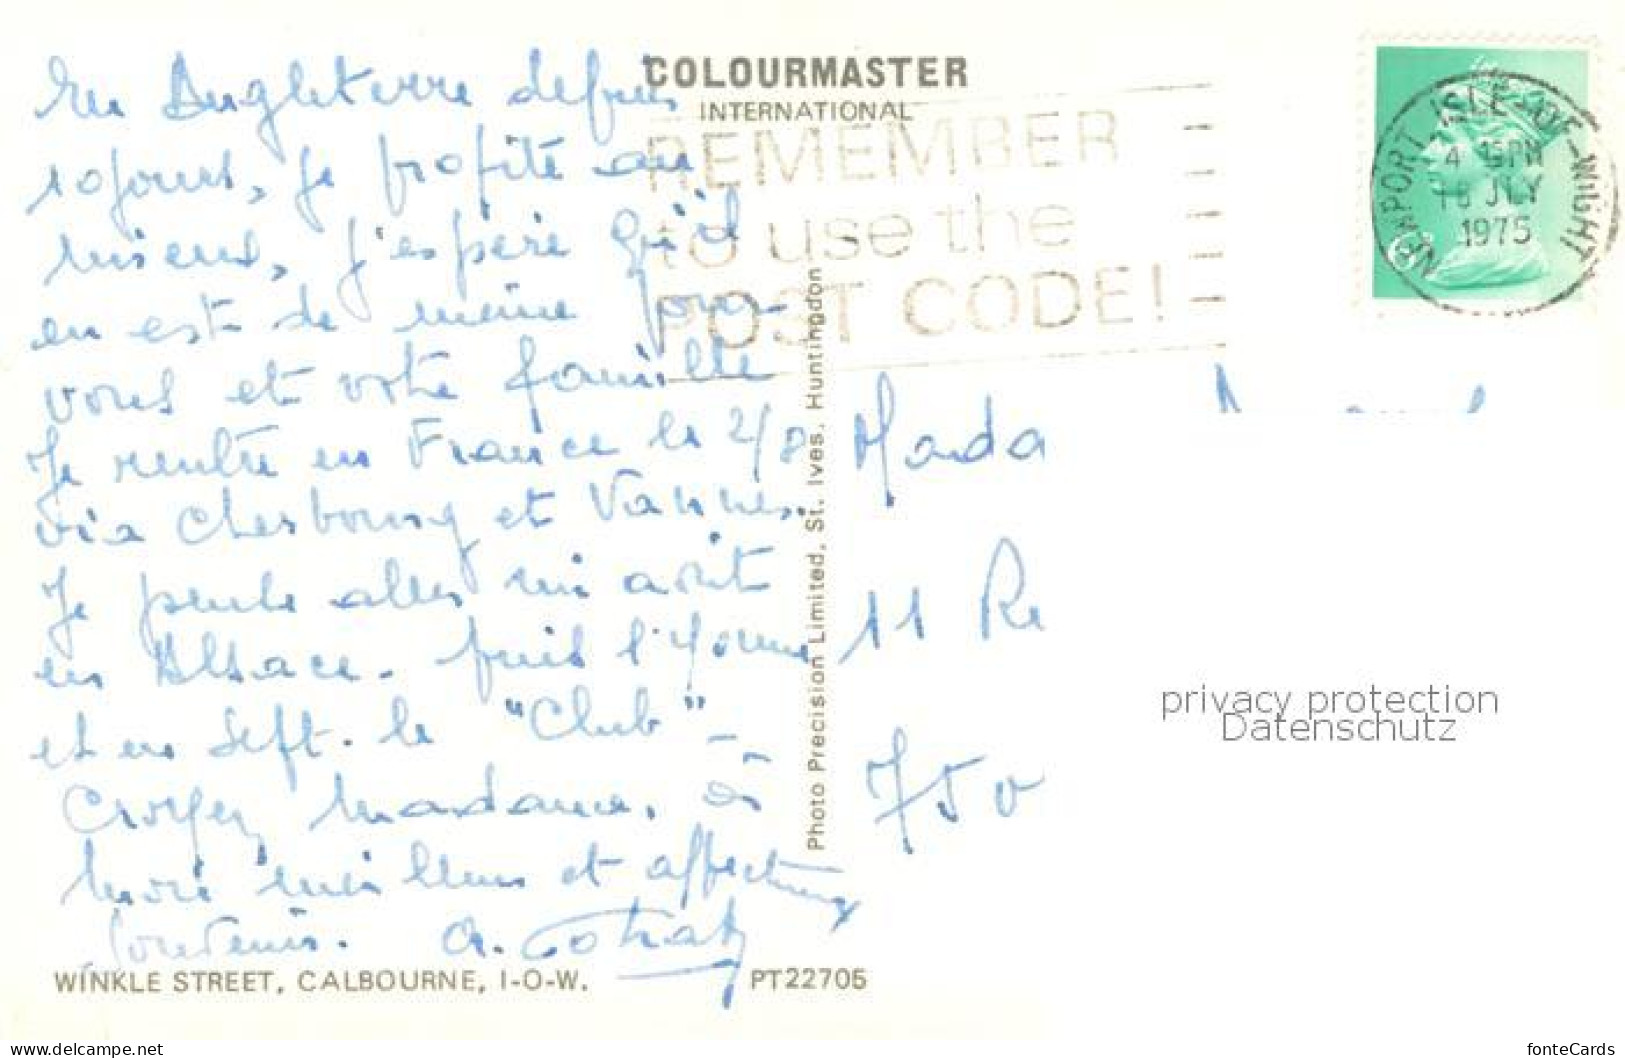 COLOURMASTER
INTERNATIONAL
REMEMBER
to use the
POST CODE!
NEWPORT ISLE-OF-WIGHT
4 15PM
18 JLY
1975
En Angleterre depuis
10 jours, je profite au
mieux, j'espère qu'il
en est de même pour
vous et votre famille
Je rentre en France le 2/8
via Cherbourg et Vannes.
Je pense aller mi août
en Alsace. puis l'Yonne
et en Sept. le "Club" -
Croyez, Madame, à
mes meilleurs et affectueux
souvenirs. A.
Mada
11 R
750
Photo Precision Limited, St. Ives, Huntingdon
privacy protection
Datenschutz
WINKLE STREET, CALBOURNE, I-O-W.
PT22705
www.delcampe.net
fonteCards